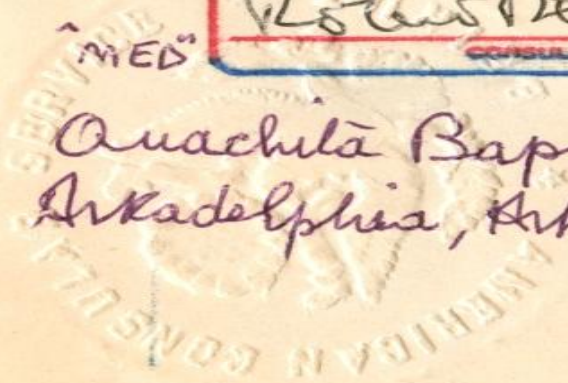 "MED"
CONSUL
Ouachita Bap
Arkadelphia, Ark
AMERICAN CONSULAR SERVICE